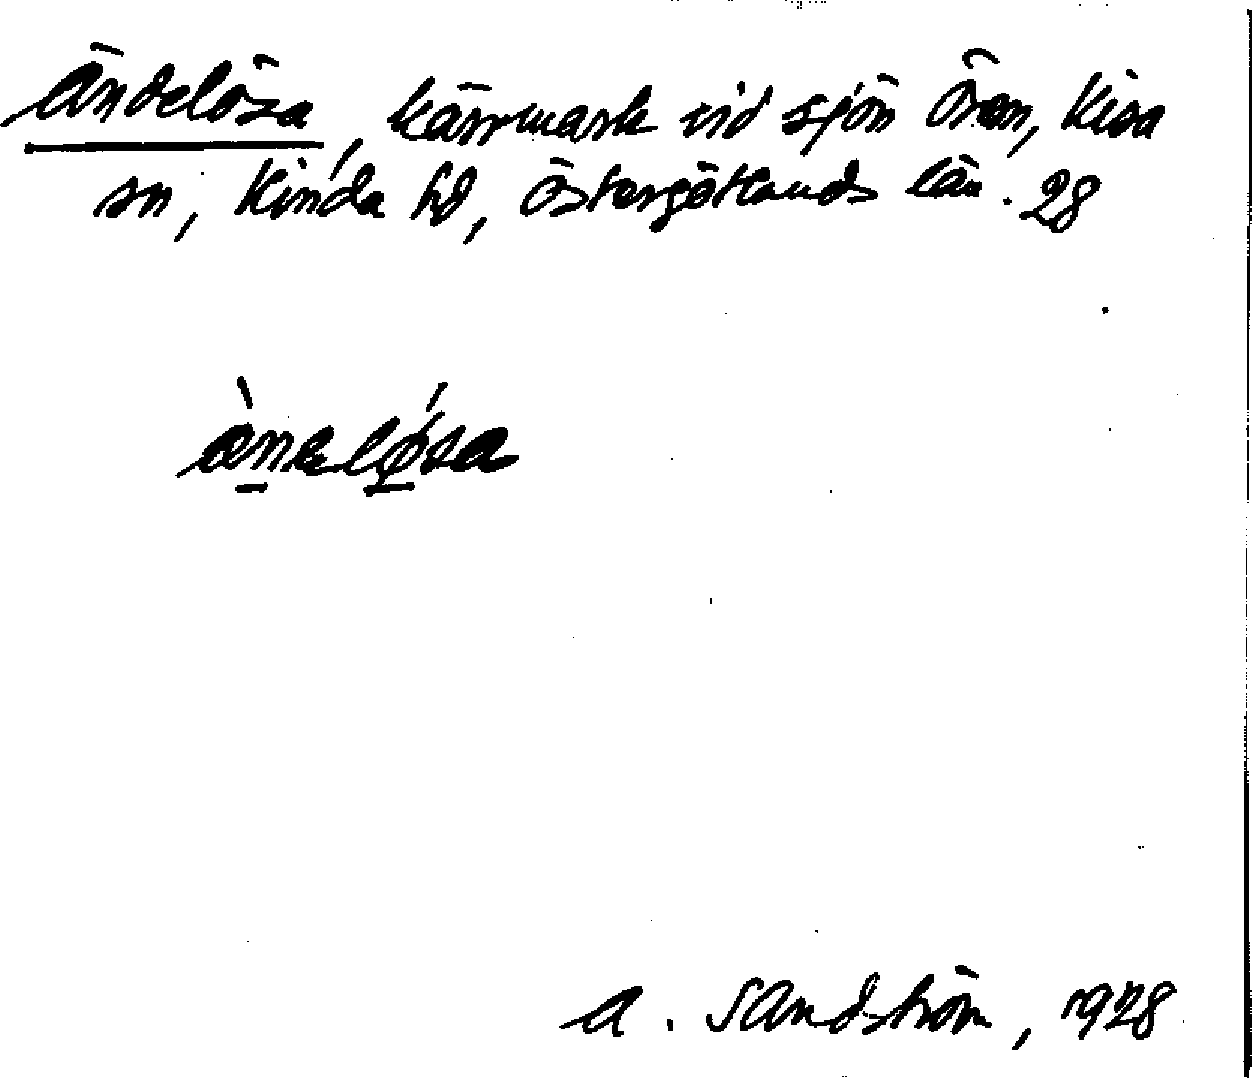 Ändelösa, kärrmark vid sjön Ören, Kisa
sn, Kinda hd, Östergötlands län. 28
æ̀nelǿsa
A. Sandström, 1928